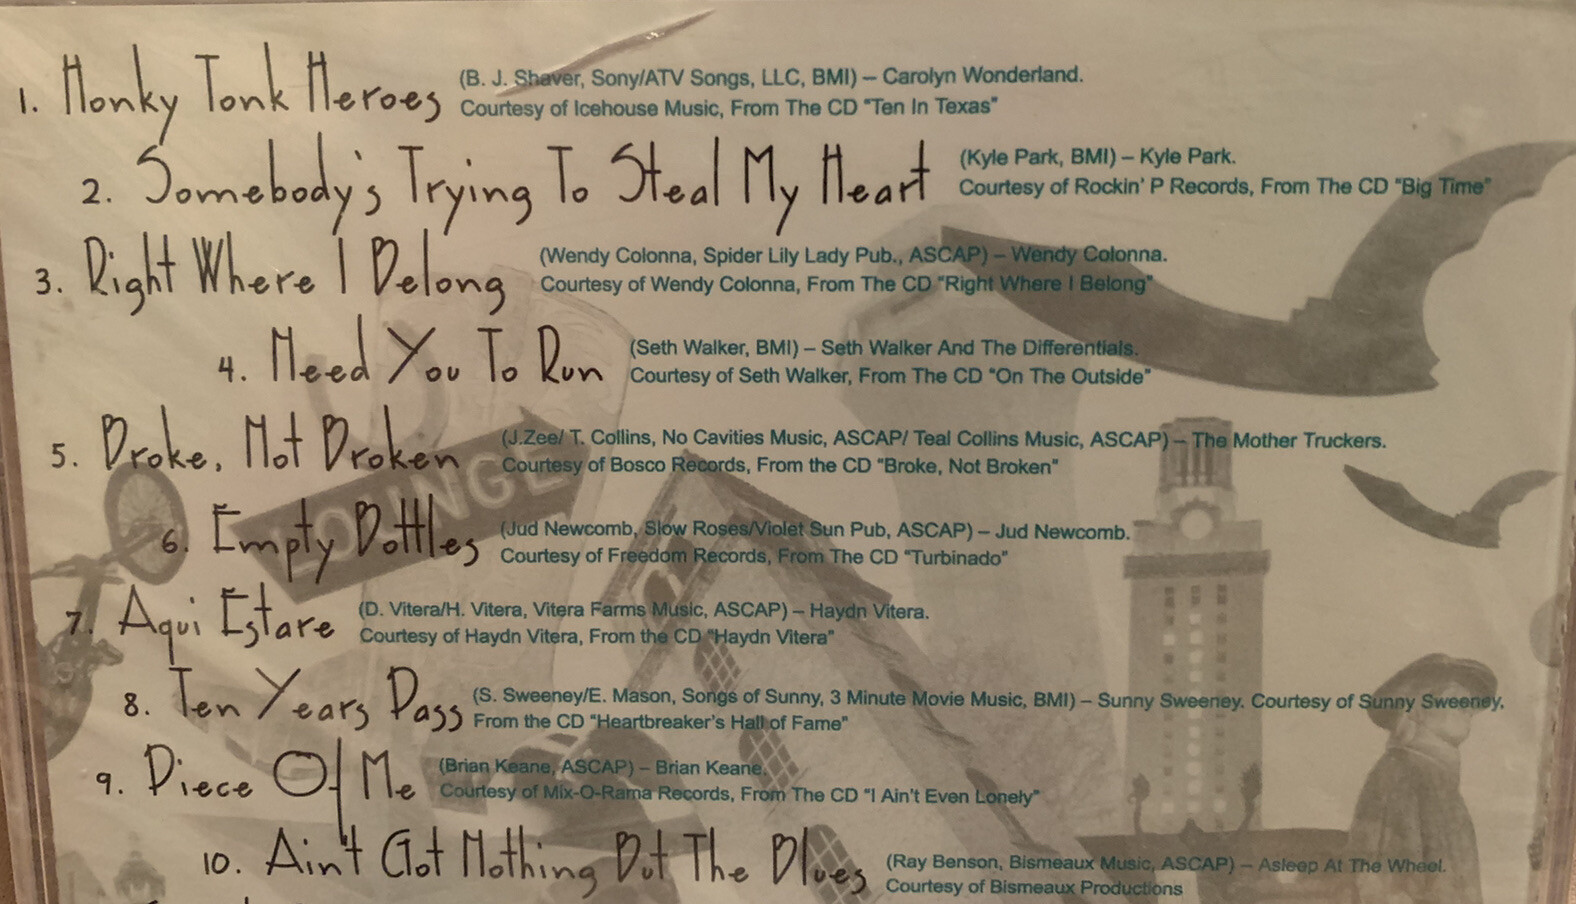 1. Honky Tonk Heroes (B. J. Shaver, Sony/ATV Songs, LLC, BMI) – Carolyn Wonderland.
Courtesy of Icehouse Music, From The CD "Ten In Texas"
2. Somebody's Trying To Steal My Heart (Kyle Park, BMI) – Kyle Park.
Courtesy of Rockin' P Records, From The CD "Big Time"
3. Right Where I Belong (Wendy Colonna, Spider Lily Lady Pub., ASCAP) – Wendy Colonna.
Courtesy of Wendy Colonna, From The CD "Right Where I Belong"
4. Need You To Run (Seth Walker, BMI) – Seth Walker And The Differentials.
Courtesy of Seth Walker, From The CD "On The Outside"
5. Broke, Not Broken (J.Zee/ T. Collins, No Cavities Music, ASCAP/ Teal Collins Music, ASCAP) – The Mother Truckers.
Courtesy of Bosco Records, From the CD "Broke, Not Broken"
LOUNGE
6. Empty Bottles (Jud Newcomb, Slow Roses/Violet Sun Pub, ASCAP) – Jud Newcomb.
Courtesy of Freedom Records, From The CD "Turbinado"
7. Aqui Estare (D. Vitera/H. Vitera, Vitera Farms Music, ASCAP) – Haydn Vitera.
Courtesy of Haydn Vitera, From the CD "Haydn Vitera"
8. Ten Years Pass (S. Sweeney/E. Mason, Songs of Sunny, 3 Minute Movie Music, BMI) – Sunny Sweeney. Courtesy of Sunny Sweeney,
From the CD "Heartbreaker's Hall of Fame"
9. Piece Of Me (Brian Keane, ASCAP) – Brian Keane.
Courtesy of Mix-O-Rama Records, From The CD "I Ain't Even Lonely"
10. Ain't Got Nothing But The Blues (Ray Benson, Bismeaux Music, ASCAP) – Asleep At The Wheel.
Courtesy of Bismeaux Productions